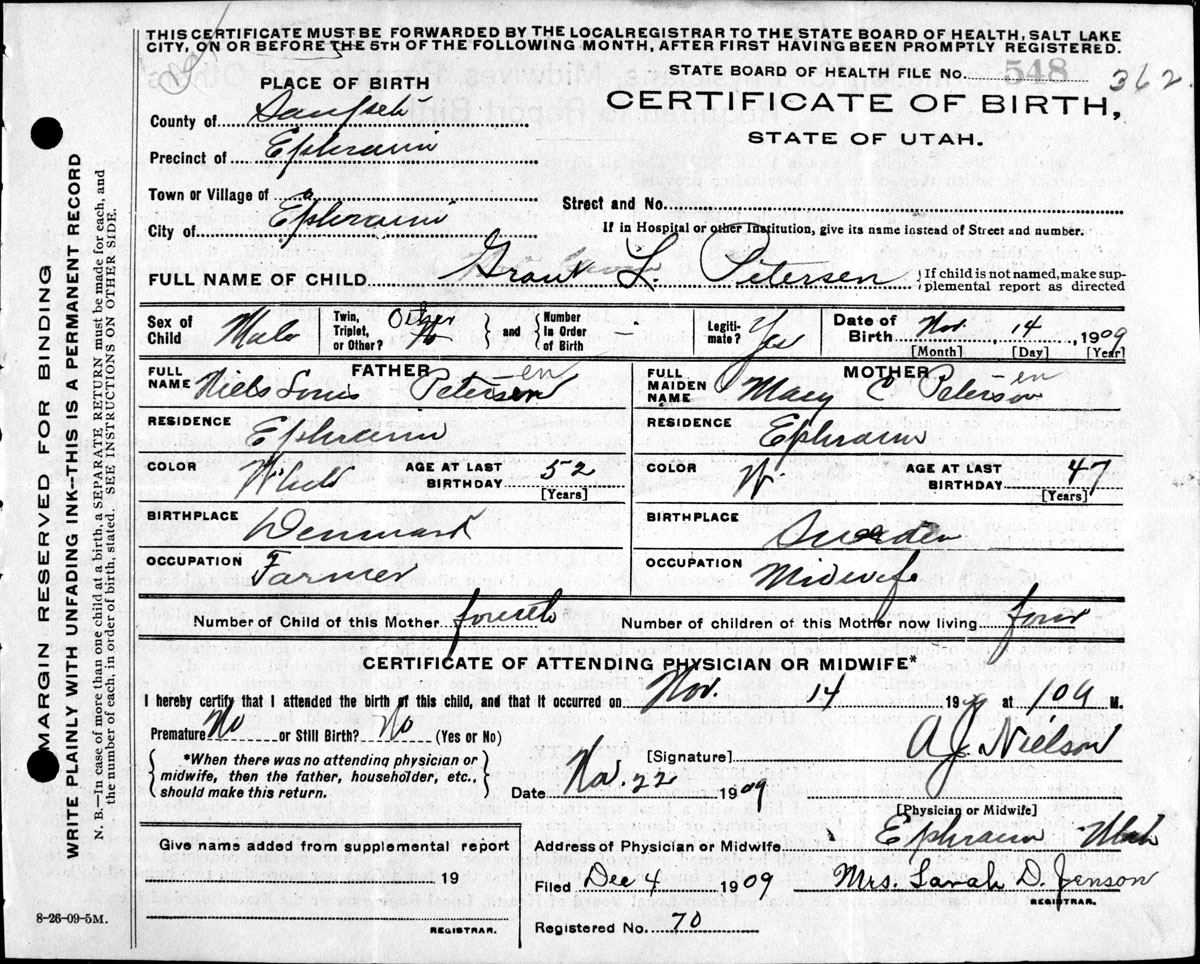 THIS CERTIFICATE MUST BE FORWARDED BY THE LOCAL REGISTRAR TO THE STATE BOARD OF HEALTH, SALT LAKE
CITY, ON OR BEFORE THE 5TH OF THE FOLLOWING MONTH, AFTER FIRST HAVING BEEN PROMPTLY REGISTERED.
PLACE OF BIRTH
STATE BOARD OF HEALTH FILE No. 548 362
CERTIFICATE OF BIRTH,
STATE OF UTAH.
County of
Precinct of Ephraim
Town or Village of
City of Ephraim
Street and No.
If in Hospital or other Institution, give its name instead of Street and number.
FULL NAME OF CHILD Grant L. Petersen
If child is not named, make sup-
plemental report as directed
Sex of Child Male
Twin, Triplet, or Other?
and Number In Order of Birth –
Legiti-mate? Yes
Date of Birth Nov. 14 1909
[Month] [Day] [Year]
FATHER
FULL NAME Niels Louis Petersen -en
RESIDENCE Ephraim
COLOR White
AGE AT LAST BIRTHDAY 52
[Years]
BIRTHPLACE Denmark
OCCUPATION Farmer
MOTHER
FULL MAIDEN NAME Mary C Peterson -en
RESIDENCE Ephraim
COLOR W
AGE AT LAST BIRTHDAY 47
[Years]
BIRTHPLACE Sweden
OCCUPATION Midwife
Number of Child of this Mother fourth
Number of children of this Mother now living four
CERTIFICATE OF ATTENDING PHYSICIAN OR MIDWIFE*
I hereby certify that I attended the birth of this child, and that it occurred on Nov. 14 190 at M.
Premature No or Still Birth? No (Yes or No)
*When there was no attending physician or
midwife, then the father, householder, etc.,
should make this return.
[Signature] A J Nielson
Date Nov. 22 1909
[Physician or Midwife]
Give name added from supplemental report
19
REGISTRAR.
Address of Physician or Midwife Ephraim Utah
Filed Dec 4 1909 Mrs. Sarah D. Jenson
REGISTRAR.
Registered No. 70
8-26-09-5M.
MARGIN RESERVED FOR BINDING
WRITE PLAINLY WITH UNFADING INK--THIS IS A PERMANENT RECORD
N. B.—In case of more than one child at a birth, a SEPARATE RETURN must be made for each, and
the number of each, in order of birth, stated. SEE INSTRUCTIONS ON OTHER SIDE.